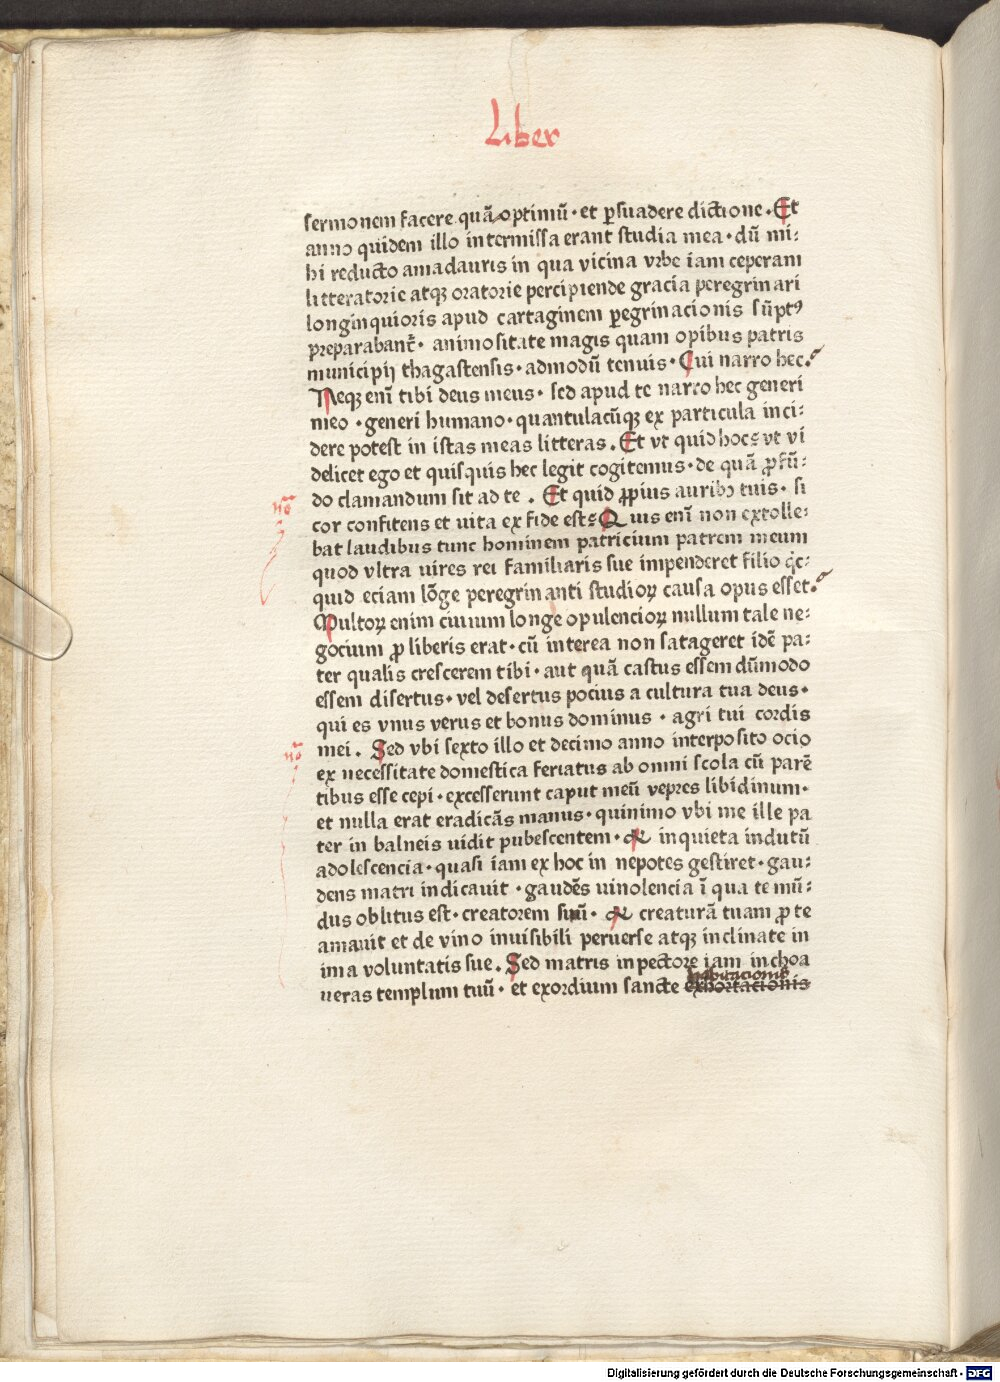 Liber
sermonem facere quā optimū · et ꝑsuadere dictione . Et
anno quidem illo intermissa erant studia mea · dū mi:
hi reducto amadauris in qua vicina vrbe iam ceperam
litteratorie atqꝫ oratorie percipiende gracia peregrinari
longinquioris apud cartaginem ꝑegrinacionis sūptꝰ
preparabant᷑ · animositate magis quam opibus patris
municipij thagastensis · admodū tenuis · Cui narro hec.
Neqꝫ enī tibi deus meus · sed apud te narro hec generi
meo · generi humano · quantulacūqꝫ ex particula inci:
dere potest in istas meas litteras . Et vt quid hoc? vt vi
delicet ego et quisquis hec legit cogitemus · de quā ꝓfū:
do clamandum sit ad te . Et quid ꝓpius auribꝫ tuis · si
nōͣ
cor confitens et uita ex fide est? Quis enī non extolle:
bat laudibus tunc hominem patricium patrem meum
quod vltra uires rei familiaris sue impenderet filio qͥc:
quid eciam lōge peregrinanti studioꝝ causa opus esset.
Multoꝝ enim ciuium longe opulencioꝝ nullum tale ne:
gocium ꝓ liberis erat · cū interea non satageret idē pa:
ter qualis crescerem tibi · aut quā castus essem dūmodo
essem disertus · vel desertus pocius a cultura tua deus ·
qui es vnus verus et bonus dominus · agri tui cordis
nōͣ
mei . Sed vbi sexto illo et decimo anno interposito ocio
ex necessitate domestica feriatus ab omni scola cū parē
tibus esse cepi · excesserunt caput meū vepres libidinum ·
et nulla erat eradicās manus · quinimo vbi me ille pa
ter in balneis uidit pubescentem · & inquieta indutū
adolescencia · quasi iam ex hoc in nepotes gestiret · gau:
dens matri indicauit · gaudēs uinolencia ī qua te mū:
dus oblitus est · creatorem suū · & creaturā tuam ꝓ te
amauit et de vino inuisibili peruerse atqꝫ inclinate in
ima voluntatis sue . Sed matris in pectore iam inchoa
habitacionis
ueras templum tuū · et exordium sancte exhortacionis
Digitalisierung gefördert durch die Deutsche Forschungsgemeinschaft - DFG